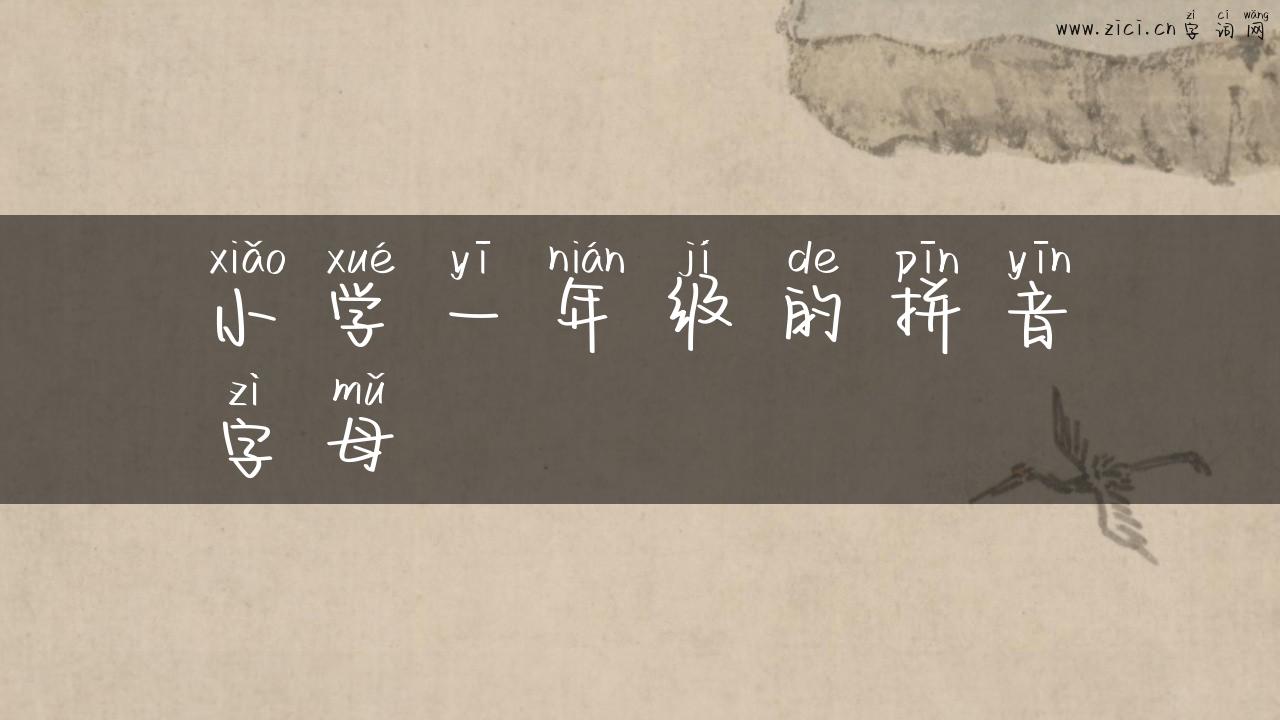 zì cí wǎng
www.zici.cn 字词网
xiǎo xué yī nián jí de pīn yīn
小学一年级的拼音
zì mǔ
字母